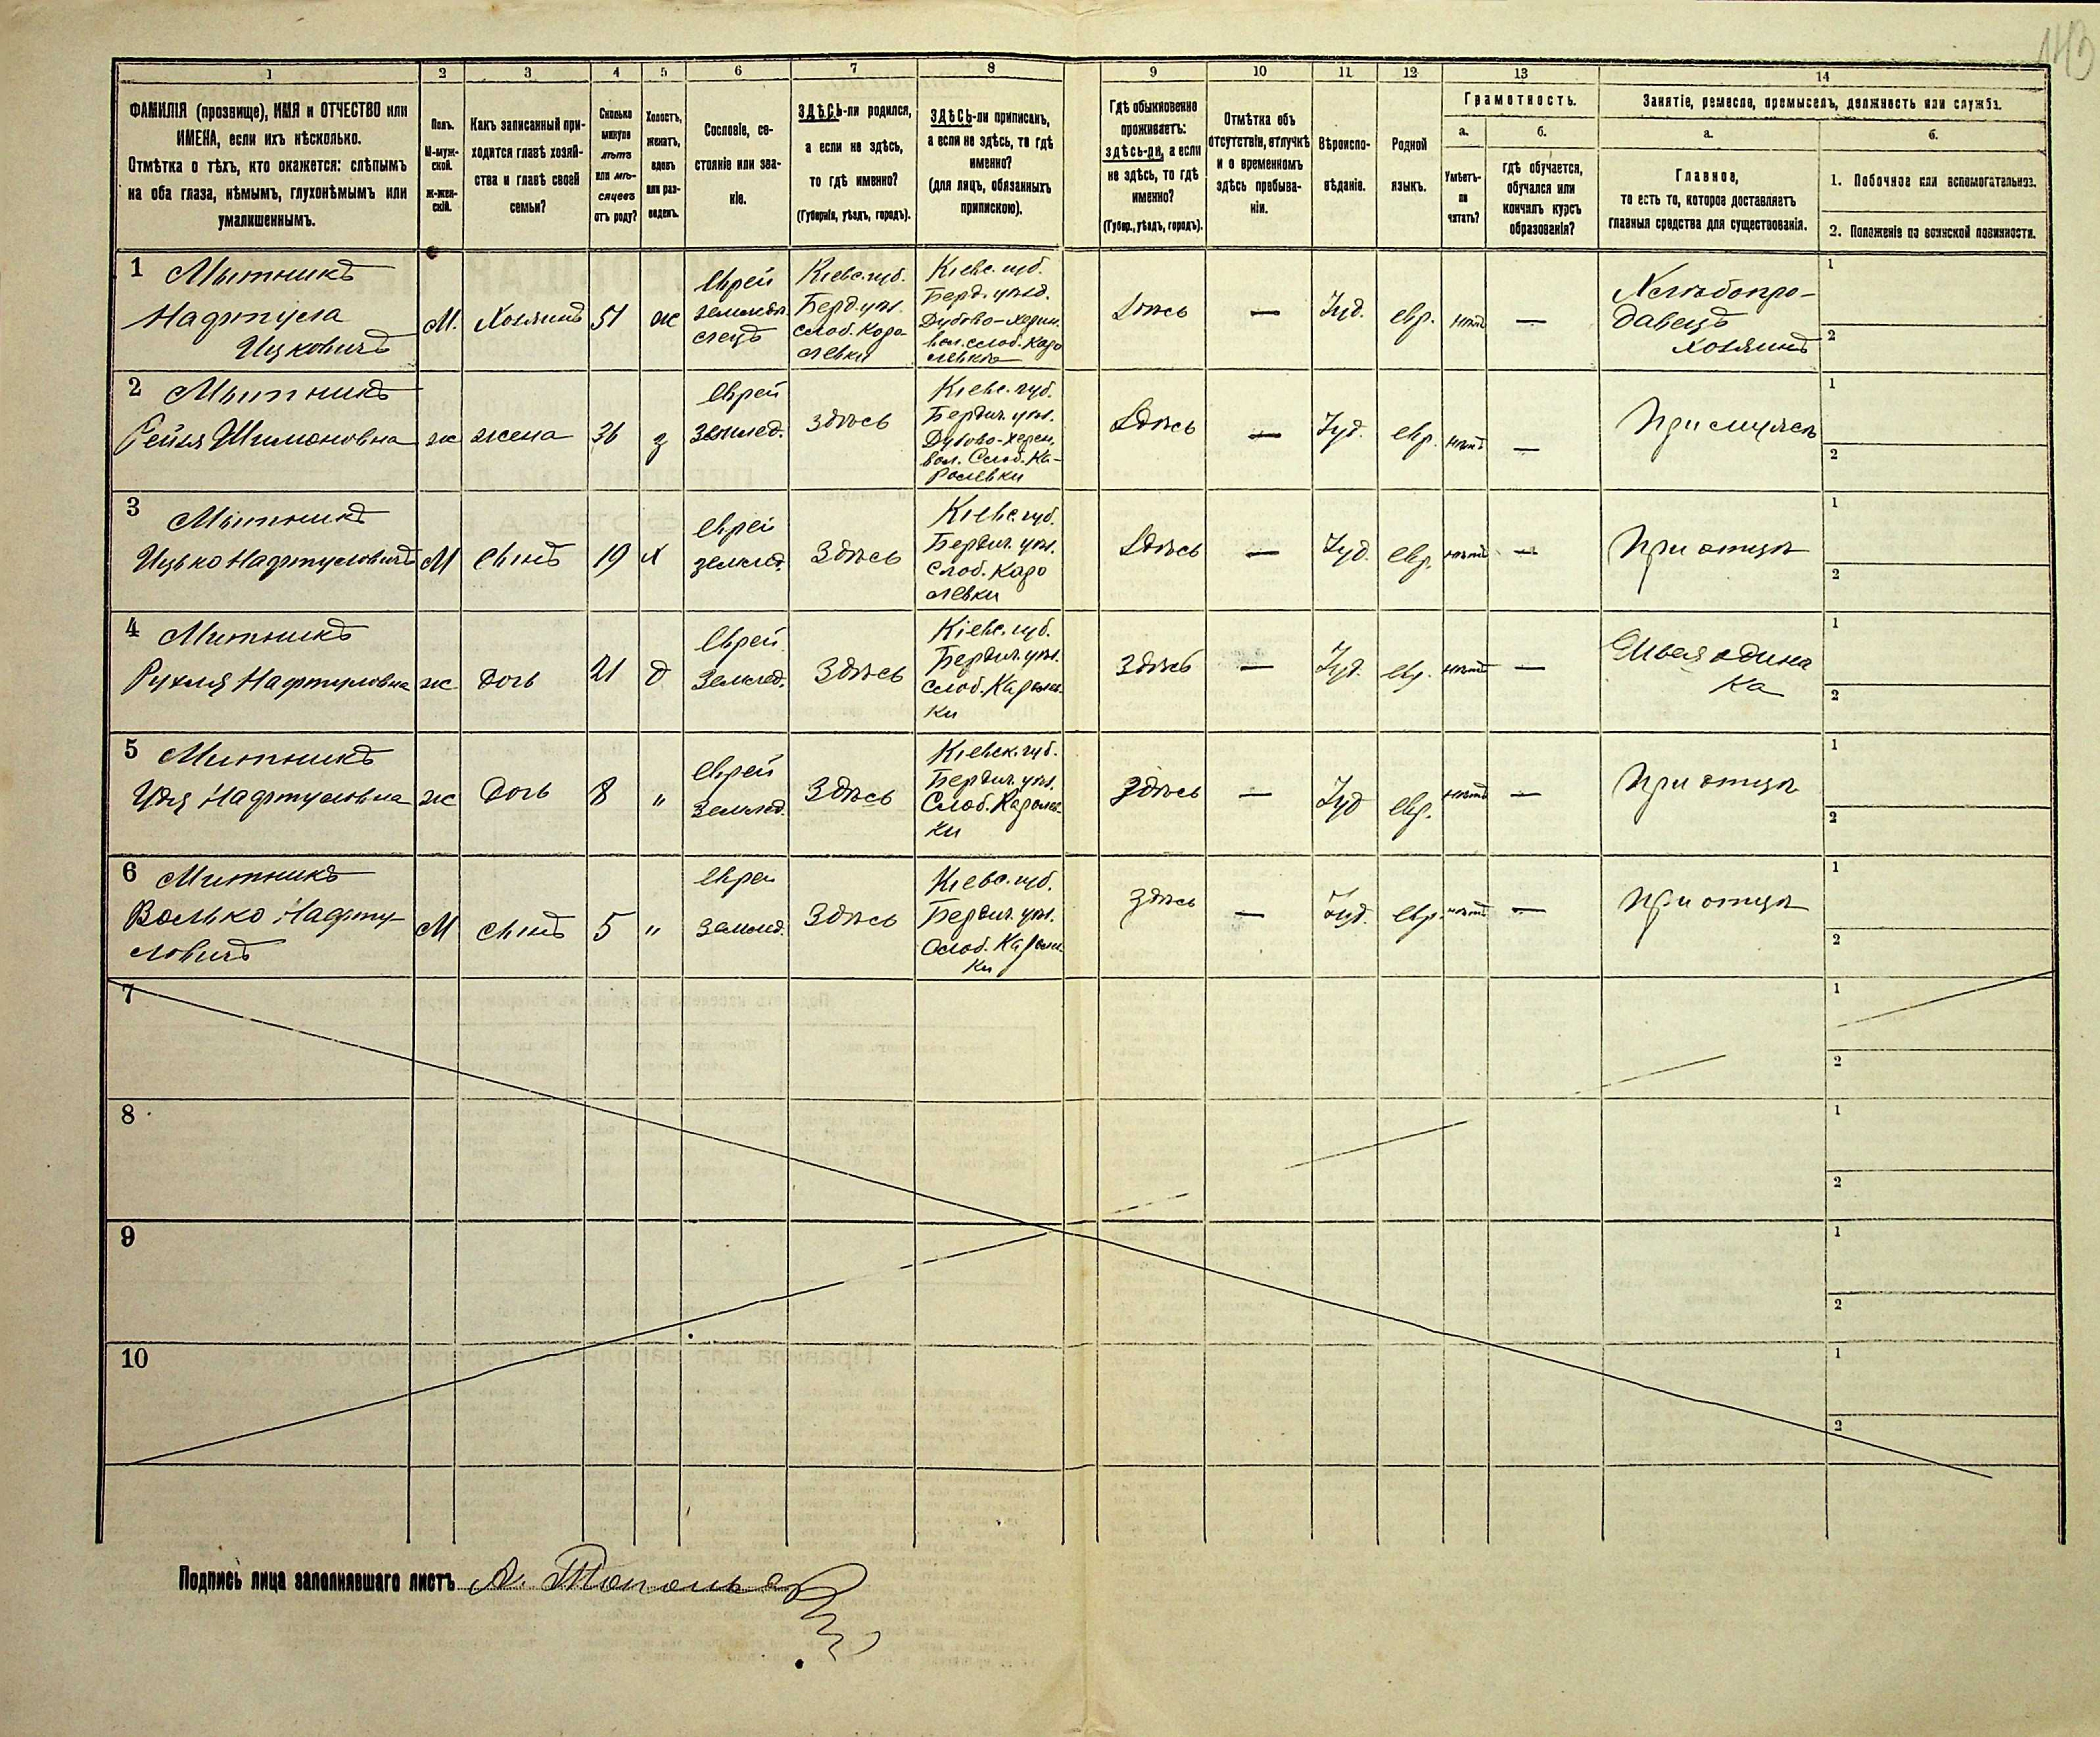 143
1 2 3 4 5 6 7 8 9 10 11 12 13 14
ФАМИЛІЯ (прозвище), ИМЯ и ОТЧЕСТВО или
ИМЕНА, если ихъ нѣсколько.
Отмѣтка о тѣхъ, кто окажется: слѣпымъ
на оба глаза, нѣмымъ, глухонѣмымъ или
умалишеннымъ.
Полъ.
М-муж-
ской.
Ж-жен-
скій.
Какъ записанный при-
ходится главѣ хозяй-
ства и главѣ своей
семьи?
Сколько
минуло
лѣтъ
или мѣ-
сяцевъ
отъ роду?
Холостъ,
женатъ,
вдовъ
или раз-
веденъ.
Сословіе, со-
стояніе или зва-
ніе.
ЗДѢСЬ-ли родился,
а если не здѣсь,
то гдѣ именно?
(Губернія, уѣздъ, городъ).
ЗДѢСЬ-ли приписанъ,
а если не здѣсь, то гдѣ
именно?
(для лицъ, обязанныхъ
припискою).
Гдѣ обыкновенно
проживаетъ:
здѣсь-ли, а если
не здѣсь, то гдѣ
именно?
(Губер., уѣздъ, городъ).
Отмѣтка объ
отсутствіи, отлучкѣ
и о временномъ
здѣсь пребыва-
ніи.
Вѣроиспо-
вѣданіе.
Родной
языкъ.
Грамотность.
а.
Умѣетъ-
ли
читать?
б.
гдѣ обучается,
обучался или
кончилъ курсъ
образованія?
Занятіе, ремесло, промыселъ, должность или служба.
а.
Главное,
то есть то, которое доставляетъ
главныя средства для существованія.
б.
1. Побочное или вспомогательное.
2. Положеніе по воинской повинности.
1 Мытникъ
Нафтула
Ицковичъ
М.
Хозяинъ
51
ж
Еврей
земледѣ
лецъ
Кіевс. губ.
Берд. уѣз.
слоб. Каро
левки
Кіевс. губ.
Берд. уѣзд.
Дубово-Махарин.
вол. слоб. Каро
левки
Здѣсь
—
Іуд.
евр.
нѣтъ
—
Хлѣбопро-
давецъ
хозяинъ
1
2
2 Мытникъ
Рейзя Шимоновна
ж
жена
36
з
Еврей
землед.
здѣсь
Кіевс. губ.
Бердич. уѣз.
вол. Слоб. Ка-
ролевки
Здѣсь
—
Іуд.
евр.
нѣтъ
—
При мужѣ
1
2
3 Мытникъ
Ицько Нафтуловичъ
М
сынъ
19
х
Еврей
землед.
Здѣсь
Кіевс. губ.
Бердич. уѣз.
Слоб. Каро
левки
Здѣсь
—
Іуд.
евр.
нѣтъ
—
При отцѣ
1
2
4 Митникъ
Рухля Нафтуловна
ж
дочь
21
д
Еврей
Землед.
Здѣсь
Кіевс. губ.
Бердич. уѣз.
слоб. Каролев-
ки
здѣсь
—
Іуд.
евр.
нѣтъ
—
1
2
5 Митникъ
Удя Нафтуловна
ж
Дочь
8
"
еврей
Землед.
Здѣсь
Кіевск. губ.
Бердич. уѣз.
Слоб. Каролев-
ки
здѣсь
—
Іуд
евр.
нѣтъ
—
При отцѣ
1
2
6 Митникъ
Волько Нафту-
ловичъ
М
сынъ
5
"
Еврей
Землед.
Здѣсь
Кіевс. губ.
Бердич. уѣз.
Слоб. Каролев-
ки
здѣсь
—
Іуд.
евр.
нѣтъ
—
При отцѣ
1
2
7
1
2
8
1
2
9
1
2
10
1
2
Подпись лица заполнявшаго листъ